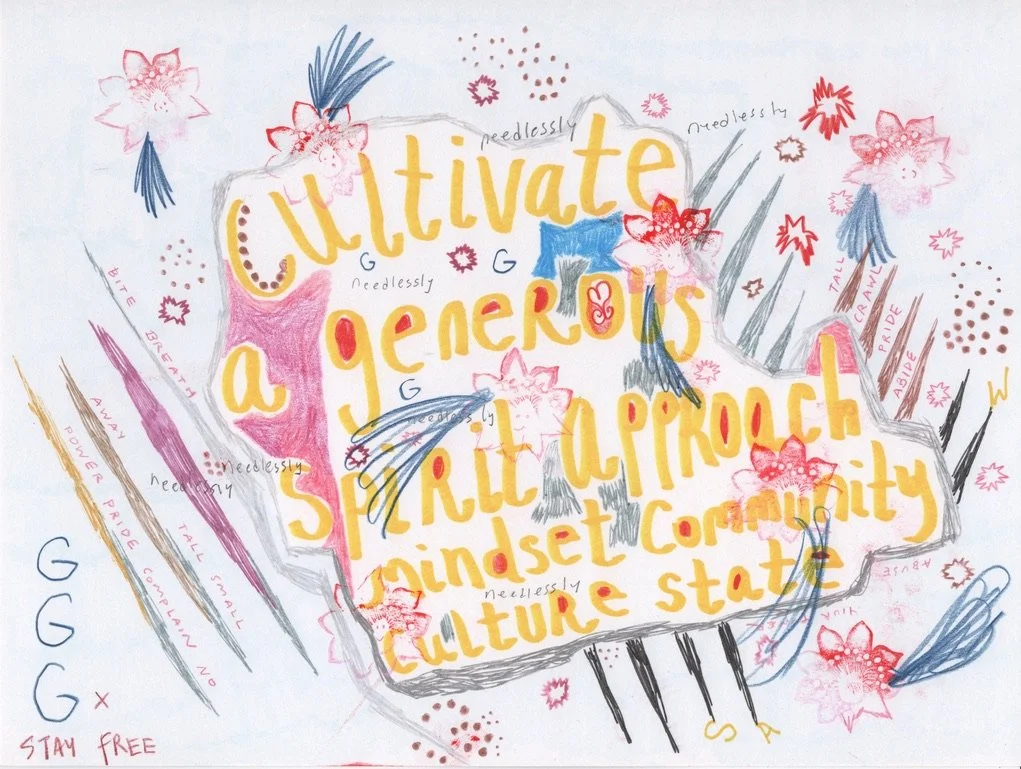 needlessly
needlessly
Cultivate
G
G
needlessly
a generous
G
needlessly
spirit approach
mindset community
needlessly
culture state
BITE BREATH
needlessly
needlessly
AWAY
TALL SMALL
POWER PRIDE COMPLAIN NO
TALL
CRAWL
PRIDE
ABIDE
W
ABUSE
S
A
G
G
G x
STAY FREE